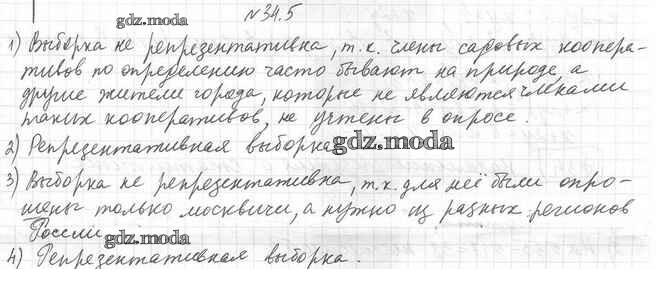 gdz.moda
№34.5
1) Выборка не репрезентативна, т.к. члены садовых коопера-
тивов по определению часто бывают на природе, а
другие жители города, которые не являются членами
таких кооперативов, не учтены в опросе.
2) Репрезентативная выборка
gdz.moda
3) Выборка не репрезентативна, т.к. для неё были опро-
шены только москвичи, а нужно из разных регионов
России
gdz.moda
4) Репрезентативная выборка.